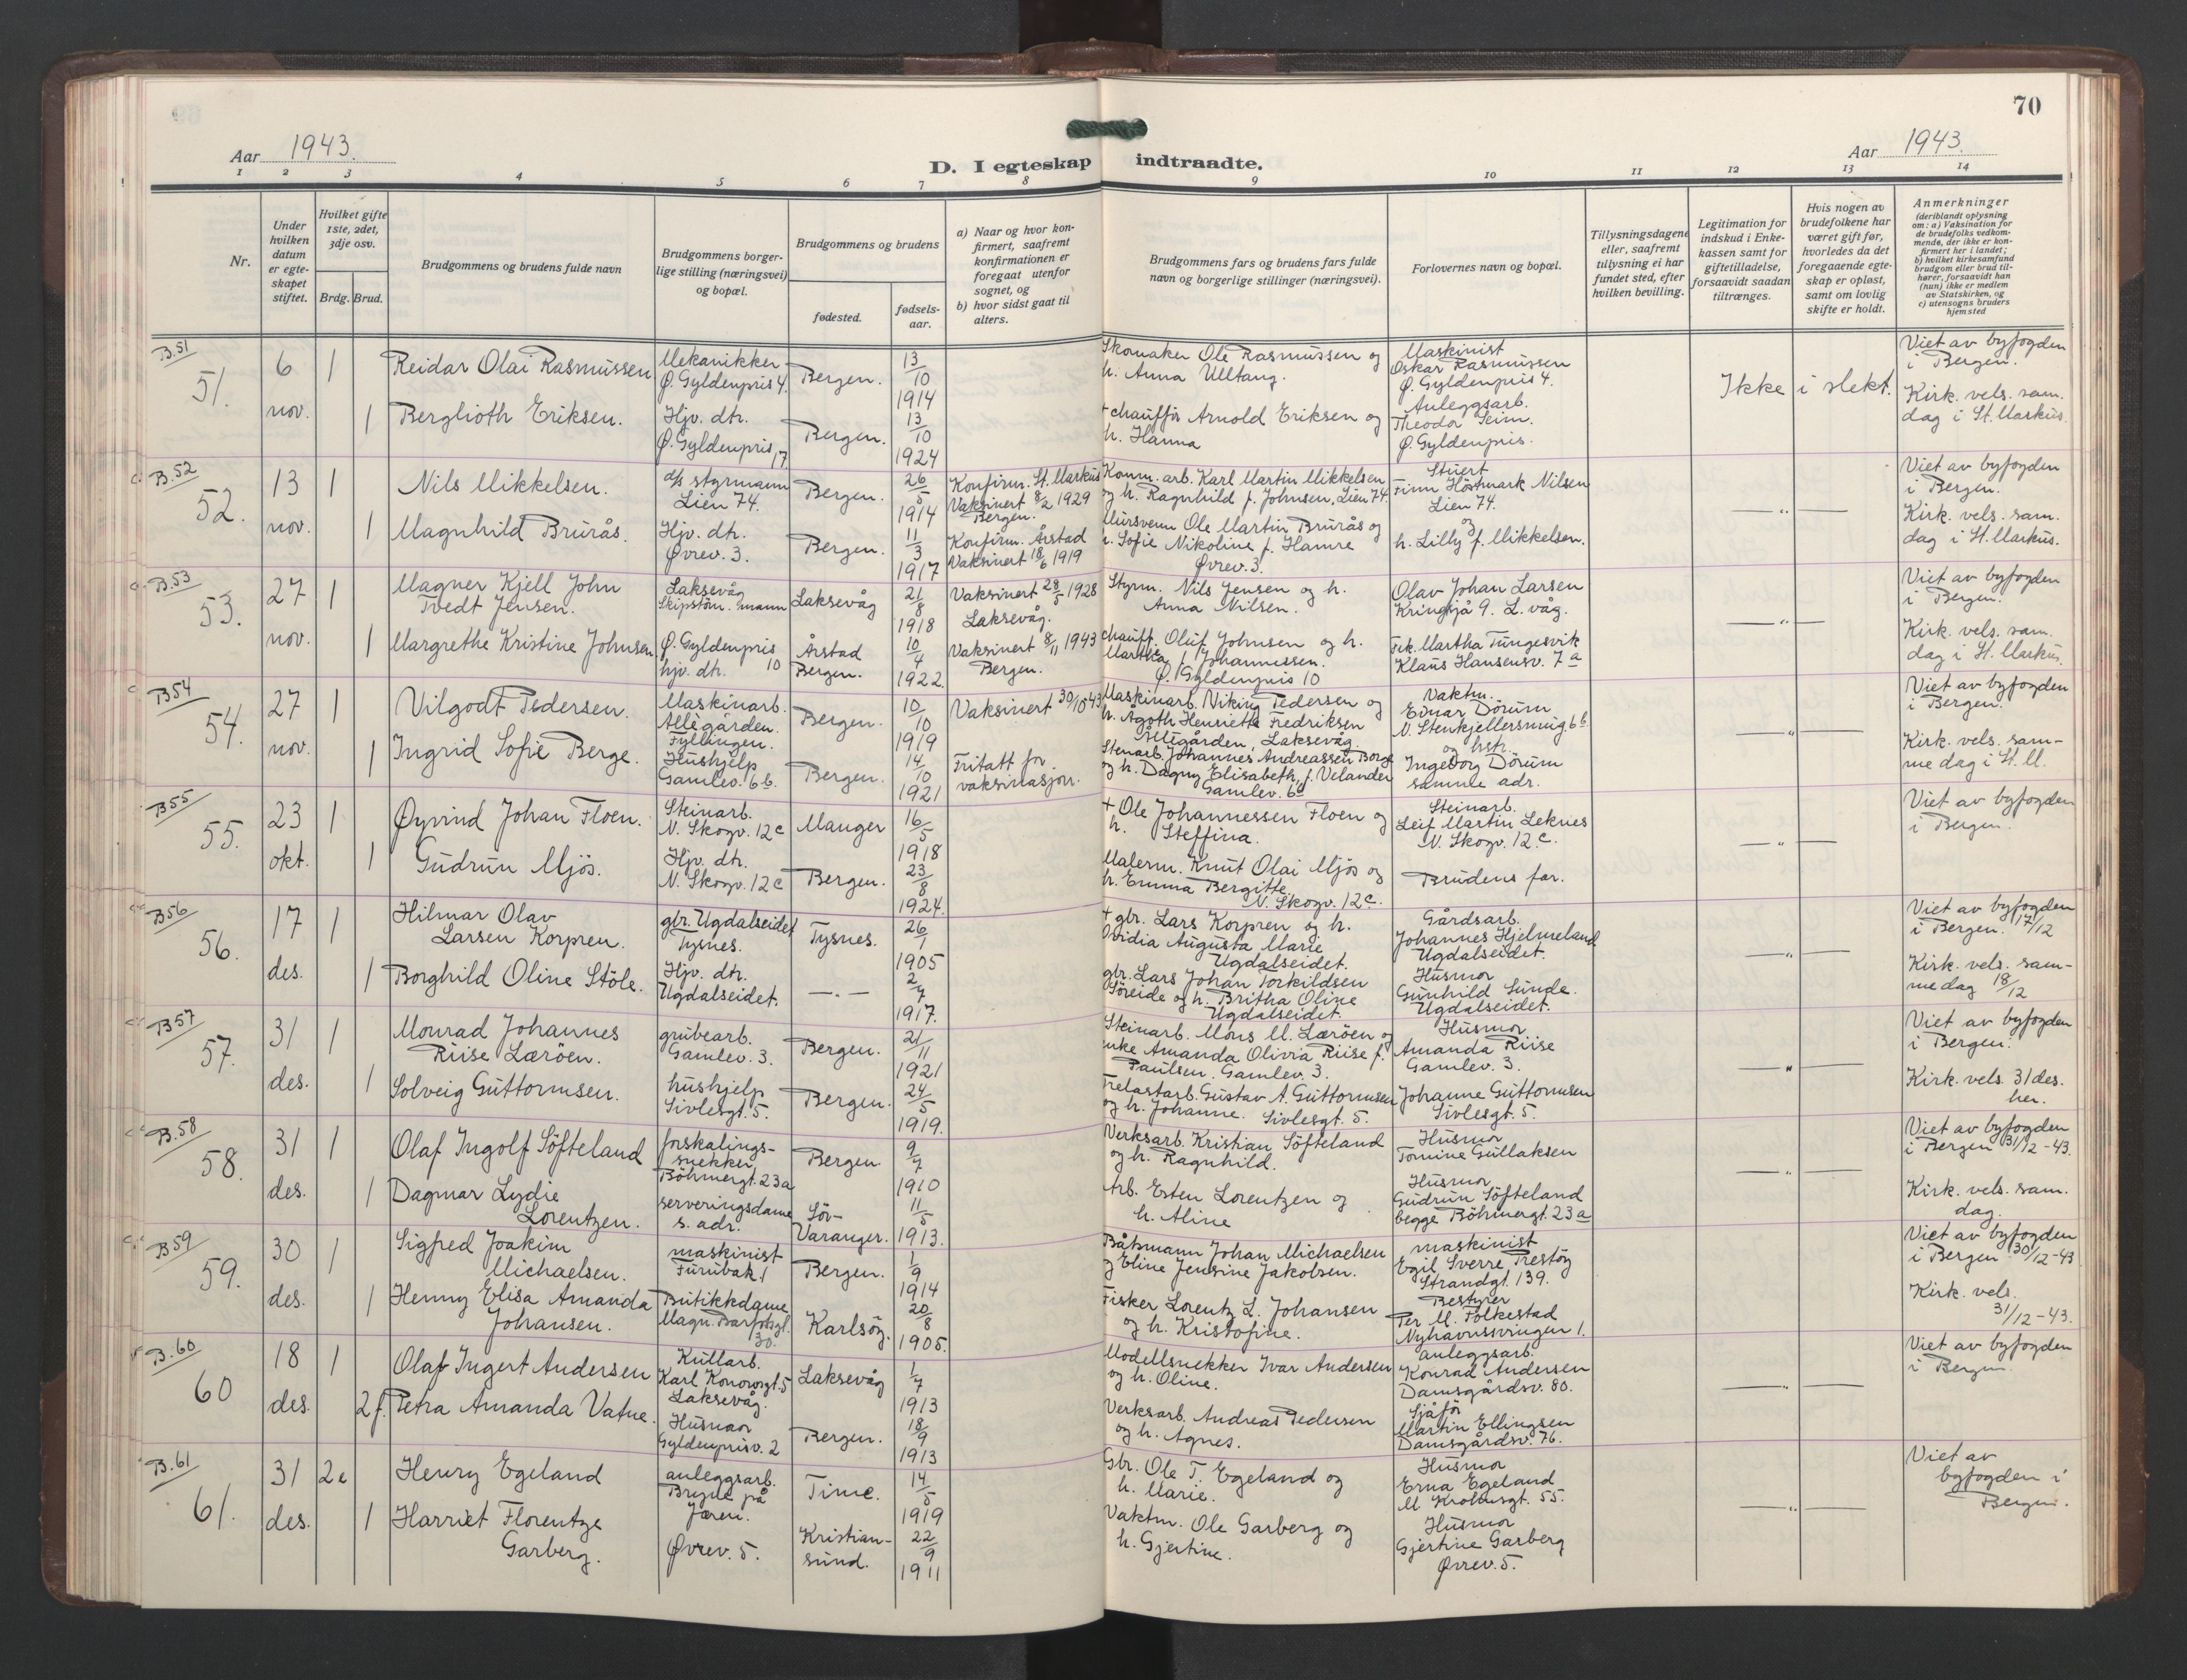 70
Aar 1943.
D. I egteskap indtraadte.
Aar 1943.
1 2 3 4 5 6 7 8 9 10 11 12 13 14
Nr.
Under hvilken datum er egteskapet stiftet.
Hvilket gifte 1ste, 2det, 3dje osv.
Brdg. Brud.
Brudgommens og brudens fulde navn
Brudgommens borgerlige stilling (næringsvei) og bopæl.
Brudgommens og brudens
fødested.
fødselsaar.
a) Naar og hvor konfirmert, saafremt konfirmationen er foregaat utenfor sognet, og
b) hvor sidst gaat til alters.
Brudgommens fars og brudens fars fulde navn og borgerlige stillinger (næringsvei).
Forlovernes navn og bopæl.
Tillysningsdagene eller, saafremt tillysning ei har fundet sted, efter hvilken bevilling.
Legitimation for indskud i Enkekassen samt for giftetilladelse, forsaavidt saadan tiltrænges.
Hvis nogen av brudefolkene har været gift før, hvorledes da det foregaaende egteskap er opløst, samt om lovlig skifte er holdt.
Anmerkninger
(deriblandt oplysning om: a) Vaksination for de brudefolks vedkommende, der ikke er konfirmert her i landet; b) hvilket kirkesamfund brudgom eller brud tilhører, forsaavidt han (hun) ikke er medlem av Statskirken, og c) utensogns bruders hjemsted
B.51
51. 6 nov. 1 Reidar Olai Rasmussen Mekanikker Ø. Gyldenpris 4. Bergen. 13/10 1914
Skomaker Ole Rasmussen og h. Anna Ulltang.
Maskinist Oskar Rasmussen Ø. Gyldenpris 4.
Ikke i slekt.
Viet av byfogden i Bergen.
1 Berglioth Eriksen. Hjv. dtr. Ø. Gyldenpris 17 Bergen. 13/10 1924
+ chauffør Arnold Eriksen og h. Hanna
Anleggsarb. Theodor Seim. Ø. Gyldenpris.
Kirk. vels. sam. dag i St. Markus.
B.52
52. 13 nov. 1 Nils Mikkelsen. d/s styrmann Lien 74. Bergen. 26/5 1914
Konfirm. St. Markus Vaksinert 8/2 1929 Bergen.
Komm. arb. Karl Martin Mikkelsen og h. Ragnhild f. Johnsen, Lien 74.
Stuert Finn Höstmark Nilsen Lien 74. og
—„—
Viet av byfogden i Bergen.
1 Magnhild Brurås. Hjv. dtr. Øvrev. 3. Bergen. 11/3 1917
Konfirm. Årstad Vaksinert 18/6 1919
Mursvenn Ole Martin Brurås og h. Sofie Nikoline f. Hamre Øvrev. 3.
h. Lilly f. Mikkelsen.
Kirk. vels. sam. dag i St. Markus.
B.53
53. 27 nov. 1 Magner Kjell John Tvedt Jensen. Laksevåg Skipstöm.mann Laksevåg 21/8 1918
Vaksinert 28/5 1928 Laksevåg.
Styrm. Nils Jensen og h. Anna Nilsen.
Olav Johan Larsen Kringsjå 9. L. våg.
—„—
Viet av byfogden i Bergen.
1 Margrethe Kristine Johnsen. Ø. Gyldenpris 10 hjv. dtr. Årstad Bergen. 10/4 1922.
Vaksinert 8/11 1943 Bergen.
Chauff. Oluf Johnsen og h. Martha Johannessen. Ø. Gyldenpris 10
Frk. Martha Tungesvik Klaus Hansensv. 7a
Kirk. vels. sam. dag i St. Markus.
B54
54. 27 nov. 1 Vilgodt Pedersen. Maskinarb. Allégården. Fyllingen. Bergen. 10/10 1919
Vaksinert 30/10 43
Maskinarb. Viking Pedersen og h. Ågoth Henriette Fredriksen Allégården, Laksevåg.
Vaktm. Einar Dörum N. Stenkjellersmug 6b og hstr.
—„—
Viet av byfogden i Bergen.
1 Ingrid Sofie Berge. Hushjelp Gamlev. 6b. Bergen. 14/10 1921
Fritatt for vaksinasjon.
Stenarb. Johannes Andreassen Berge og h. Dagny Elisabeth, f. Velander Gamlev. 6b
Ingeborg Dörum samme adr.
Kirk. vels. samme dag i St. M.
B55
55. 23 okt. 1 Øyvind Johan Floen. Steinarb. N. Skogv. 12c Manger 16/5 1918
+ Ole Johannessen Floen og h. Steffina.
Steinarb. Leif Martin Leknes N. Skogv. 12c.
—„—
Viet av byfogden i Bergen.
1 Gudrun Mjös. Hjv. dtr. N. Skogv. 12c Bergen. 23/8 1924.
Malerm. Knut Olai Mjös og h. Emma Bergitte. N. Skogv. 12c.
Brudens far.
B56
56. 17 des. 1 Hilmar Olav Larsen Korpren. gbr. Ugdalseidet Tysnes. Tysnes. 26/1 1905
+ gbr. Lars Korpren og h. Ovidia Augusta Marie Ugdalseidet.
Gårdsarb. Johannes Hjelmeland Ugdalseidet.
—„—
Viet av byfogden i Bergen. 17/12
1 Borghild Oline Stöle. Hjv. dtr. Ugdalseidet. —„— 2/7 1917.
gbr. Lars Johan Torkildsen Söreide og h. Britha Oline Ugdalseidet.
Husmor Gunhild Sunde. Ugdalseidet.
Kirk. vels. samme dag 18/12
B57
57. 31 des. 1 Monrad Johannes Riise Læröen. grubearb. Gamlev. 3. Bergen. 21/11 1921
Steinarb. Mons M. Læröen og enke Amanda Olivia Riise f. Paulsen. Gamlev. 3.
Husmor Amanda Riise Gamlev. 3.
—„—
Viet av byfogden i Bergen.
1 Solveig Guttormsen. hushjelp Sivlesgt. 5. Bergen. 24/5 1919.
Trelastarb. Gustav A. Guttormsen og h. Johanne. Sivlesgt. 5.
Johanne Guttormsen Sivlesgt. 5.
Kirk. vels. 31 des. her.
B.58
58. 31 des. 1 Olaf Ingolf Söfteland forskalingssnekker Böhmergt. 23a Bergen 9/7 1910
Verksarb. Kristian Söfteland og h. Ragnhild.
Husmor Tomine Gullaksen
—„—
Viet av byfogden i Bergen 31/12-43.
1 Dagmar Lydie Lorentzen. serveringsdame s. adr. Sör-Varanger. 11/5 1913.
Arb. Esten Lorentzen og h. Aline
Husmor Gudrun Söfteland begge Böhmergt. 23a
Kirk. vels. sam. dag.
B59
59. 30 des. 1 Sigfred Joakim Michaelsen. maskinist Furubak. 1 Bergen. 1/9 1914
Båtsmann Johan Michaelsen og Eline Jensine Jakobsen.
maskinist Egil Sverre Trestöy Strandgt. 139.
Viet av byfogden i Bergen 30/12-43
1 Henny Elisa Amanda Johansen. Butikkdame Magn. Barfotsgt. 30. Karlsöy. 20/8 1905.
Fisker Lorentz L. Johansen og h. Kristofine.
Bestyrer Per M. Folkestad Nyhavnssvingen 1.
Kirk. vels. 31/12-43.
B.60
60 18 des. 1 Olaf Ingert Andersen Kullarb. Karl Konowsgt. 5 Laksevåg. Laksevåg 1/7 1913
Modellsnekker Ivar Andersen og h. Oline.
anleggsarb. Konrad Andersen Damsgårdsv. 80.
—„—
Viet av byfogden i Bergen.
2 f. Petra Amanda Vatne. Husmor Gyldenprisv. 2 Bergen. 18/9 1913
Verksarb. Andreas Pedersen og h. Agnes.
Sjåför Martin Ellingsen Damsgårdsv. 76.
B.61
61. 31 des. 2e Henry Egeland anleggsarb. Bryne på Jæren. Time. 14/5 1919
Gbr. Ole T. Egeland og h. Marie.
Husmor Erna Egeland M Krohnsgt. 55.
—„—
Viet av byfogden i Bergen.
1 Harriet Florentze Garberg. Øvrev. 5. Kristiansund. 22/9 1911
Vaktm. Ole Garberg og h. Gjertine.
Husmor Gjertine Garberg Øvrev. 5.